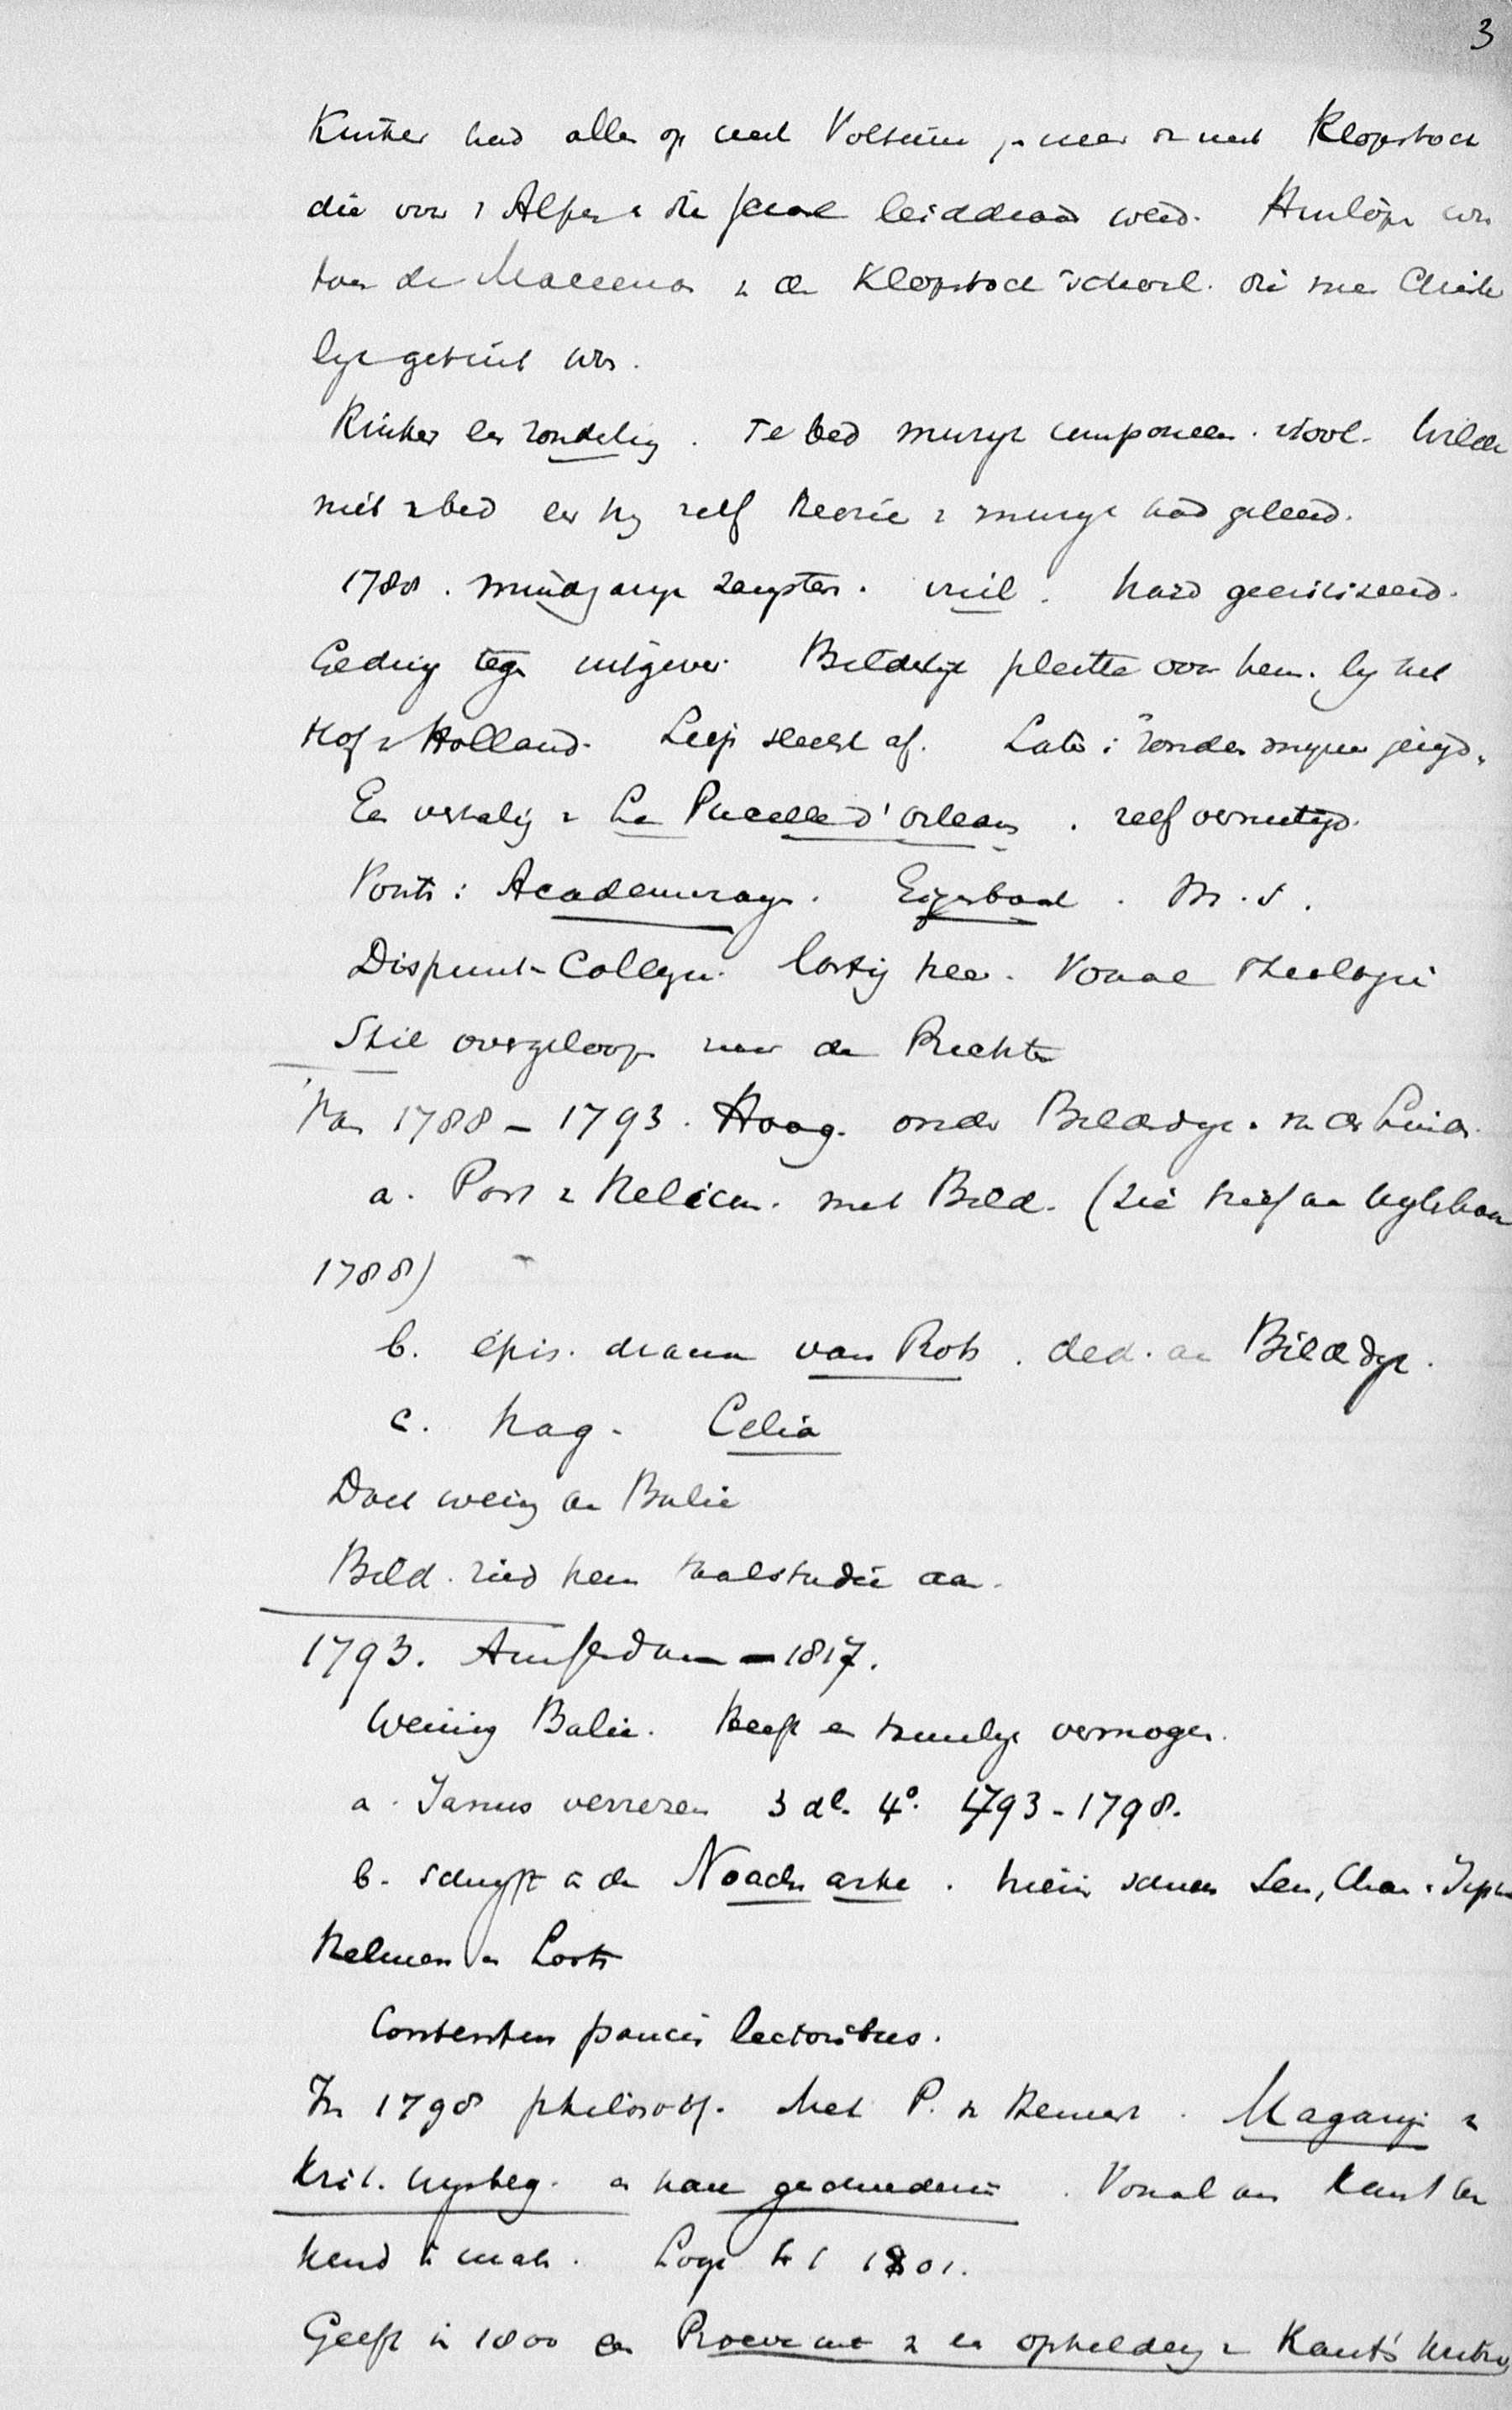 3
Kinker had alles op met Voltaire, meer dan met Klopstock
die voor 't Alpen leiddraad werd. was
toen de Maecenas v de Klopstock school. die meer Christe
lijk getint was.
Kinker een zonderling. Te bed muzyk componeeren. viool. Wilde
niet bed eer hy zelf theorie v muzyk had geleerd.
1788. mindjarige zangster. vuil. hard gecritiseerd.
Geding tege uitgever. Bilderdijk pleitte voor hem. by het
Hof v Holland. Liep slecht af. Later: "zonden myner jeugd"
Een vertaling v La Pucelle d'Orleans. zelf vernietigd.
Voorts: Academierazen. Eigenbaat. M.S.
Dispuut-College. lastig heer. Vooral Theologie
Stil overgeloopen naar de Rechten
Van 1788 – 1793. Haag. onder Bilderdyk. v der Linden.
a. Post v Helicon. met Bild. (zie brief aan Uylenbroek
1788)
b. epis. drama van Rots. ded. aan Bilderdyk.
c. trag. Celia
Doet weinig aan Balie
Bild. ried hem taalstudie aan.
1793. Amsterdam – 1817.
Weinig Balie. Heeft een tamelyk vermogen.
a. Janus verrezen 3 dl. 4°. 1793-1798.
b. schryft in de Noachs arke. hierin schuilen Sem, Cham, Japhet
Helmers en Loots
Contentus paucis lectoribus.
In 1798 philosoph. Met P. v Hemert. Magazijn v
Krit. wysbeg. en hare geschiedenis. Vooral om Kant be
kend te maken. Loopt tot 1801.
Geeft in 1800 een Proeve eener opheldering v Kant's kritiek